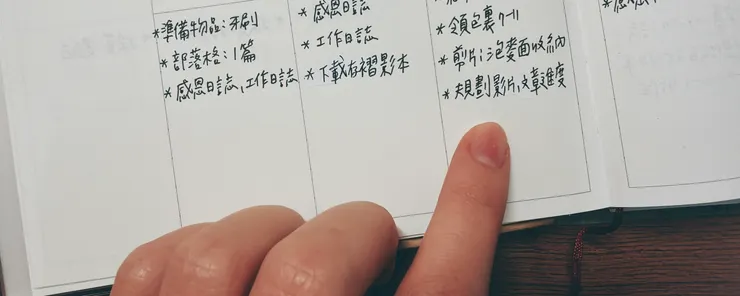 *準備物品:牙刷
*部落格:1篇
*感恩日誌、工作日誌
*感恩日誌
*工作日誌
*下載存褶影本
*領包裹7-11
*剪片:泡麥面收納
*規劃影片,文章進度